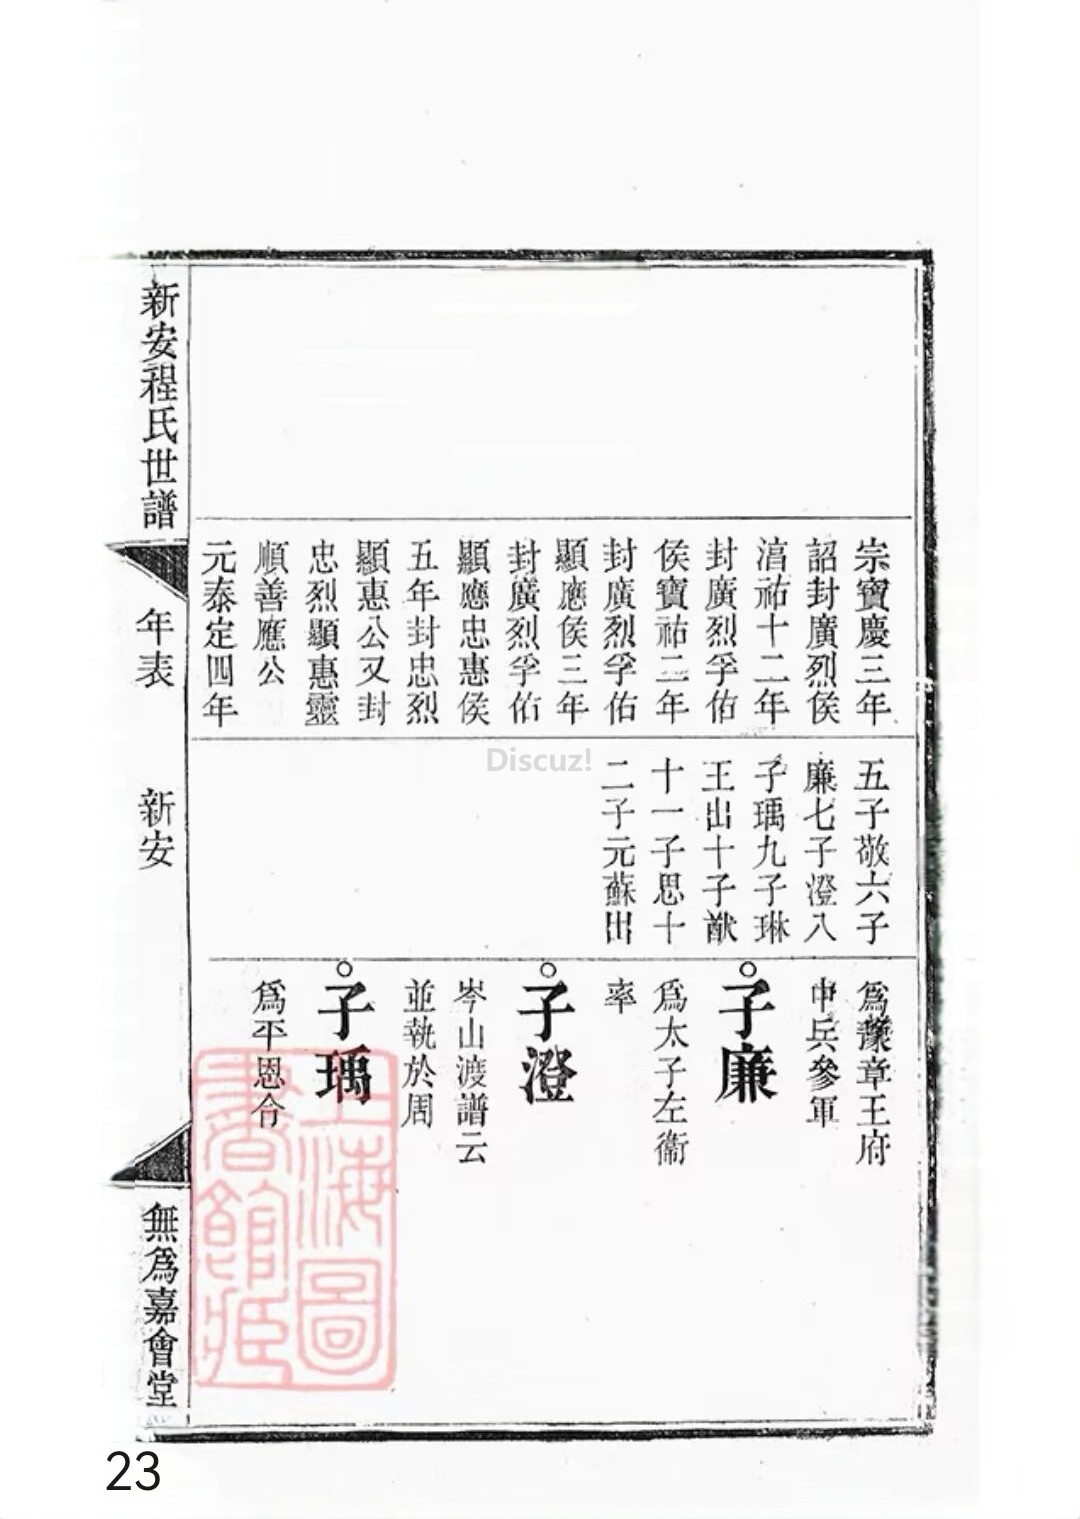 宗寶慶三年
詔封廣烈侯
淯祐十二年
封廣烈孚佑
侯寶祐二年
封廣烈孚佑
顯應侯三年
封廣烈孚佑
顯應忠惠侯
五年封忠烈
顯惠公又封
忠烈顯惠靈
順善應公
元泰定四年
五子敬六子
廉七子澄八
子瑀九子琳
王出十子猷
十一子思十
二子元蘇出
為豫章王府
中兵參軍
子廉
為太子左衞
率
子澄
岑山渡譜云
並執於周
子瑀
為平恩令
新安程氏世譜
年表
新安
無為嘉會堂
上海圖書館藏
Discuz!
23